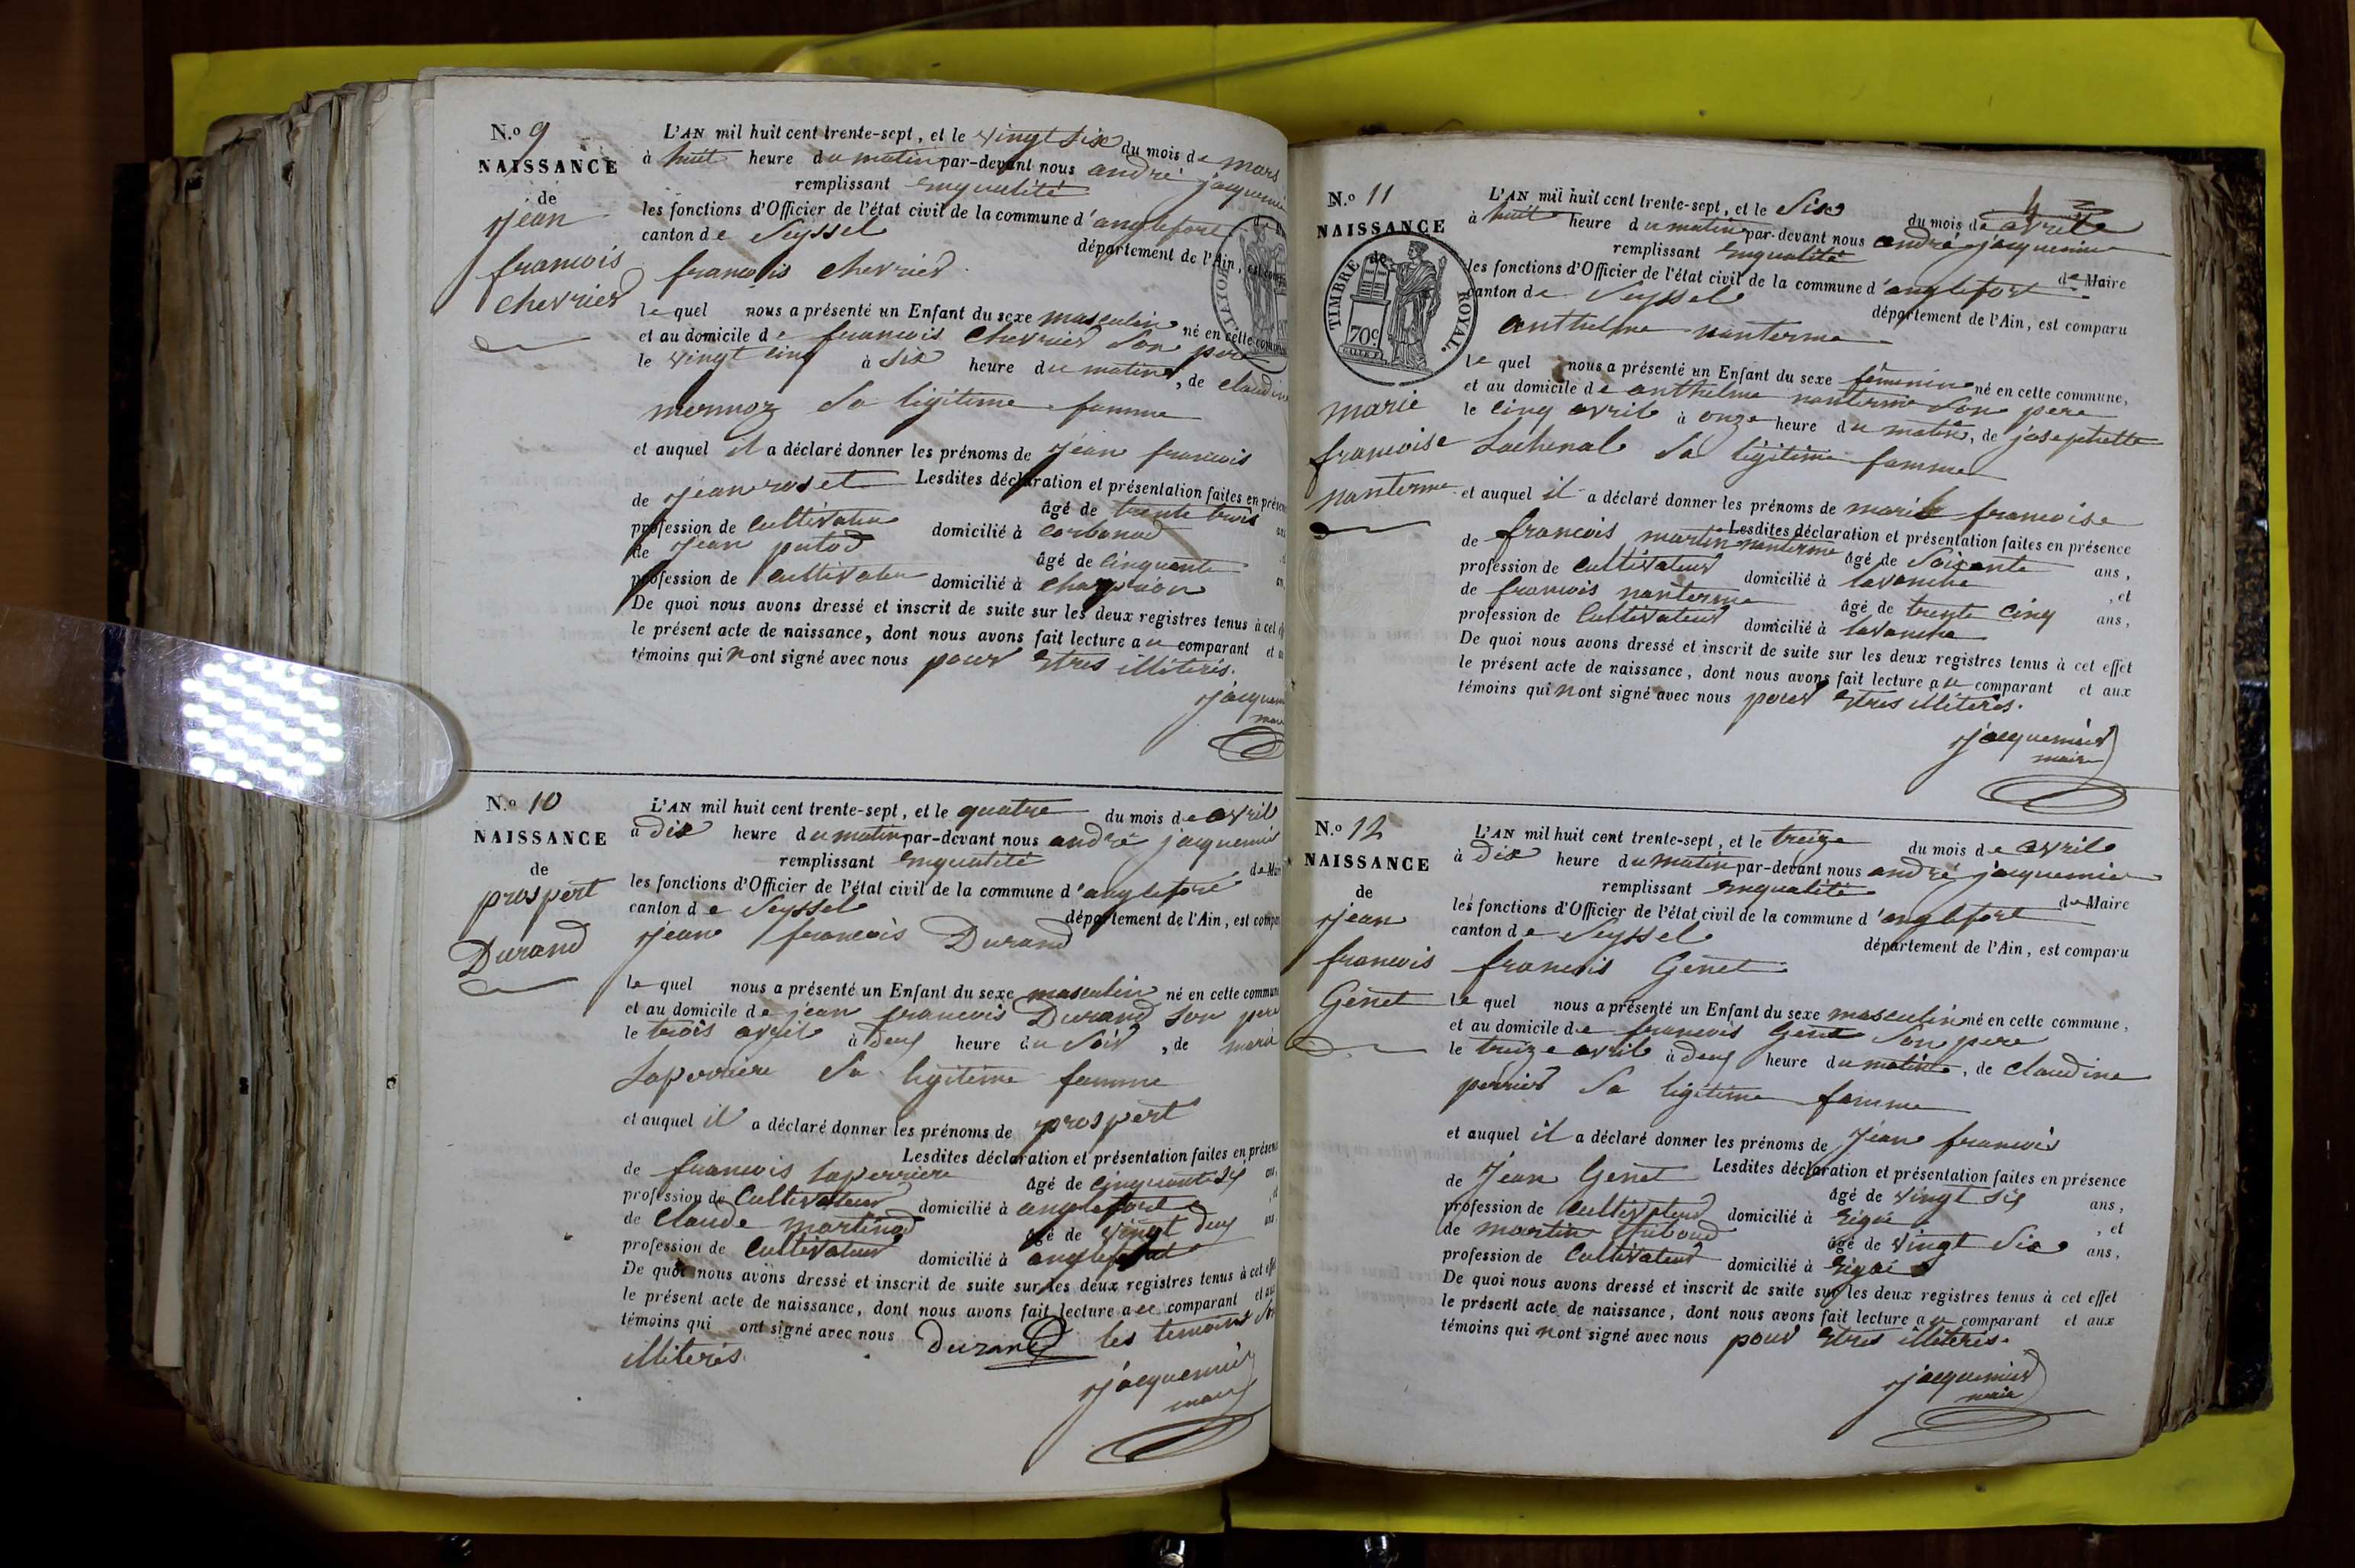 N.o 9
NAISSANCE
de
jean
francois
chevrier
L'AN mil huit cent trente-sept, et le vingt six du mois de mars
à huit heure du matin par-devant nous andré jacquemier
remplissant enqualité
les fonctions d'Officier de l'état civil de la commune d'anglefort
canton de Seyssel département de l'Ain, est
francois chevrier
le quel nous a présenté un Enfant du sexe masculin né en cette
et au domicile de francois chevrier son pere
le vingt cinq à six heure du matin, de claudine
mermoz sa ligitime famme
et auquel il a déclaré donner les prénoms de jean francois
Lesdites déclaration et présentation faites en
de jean roset âgé de trente trois
profession de cultivateur domicilié à corbonod
de jean putod âgé de cinquante
profession de cultivateur domicilié à
De quoi nous avons dressé et inscrit de suite sur les deux registres tenus à cet
le présent acte de naissance, dont nous avons fait lecture au comparant et
témoins qui n'ont signé avec nous pour estres illiteris.
N.o 10
NAISSANCE
de
prospert
Durand
L'AN mil huit cent trente-sept, et le quatre du mois de avril
à dix heure du matin par-devant nous andré jacquemier
remplissant enqualité de
les fonctions d'Officier de l'état civil de la commune d'anglefort
canton de Seyssel département de l'Ain, est
jean francois Durand
le quel nous a présenté un Enfant du sexe masculin né en cette commune
et au domicile de jean francois Durand son pere
le trois avril à deux heure du soir, de marie
Laperriere sa ligitime famme
et auquel il a déclaré donner les prénoms de prospert
Lesdites déclaration et présentation faites en
de francois laperriere âgé de cinquante six
profession de cultivateur domicilié à anglefort
de claude martinod âgé de vingt deux
profession de cultivateur domicilié à anglefort
De quoi nous avons dressé et inscrit de suite sur les deux registres tenus à cet
le présent acte de naissance, dont nous avons fait lecture au comparant et
témoins qui ont signé avec nous Durand les temoins
illiteris.
jacquemier
maire
4
N.o 11
NAISSANCE
de
TIMBRE ROYAL.
70c
marie
francoise
nanterme
L'AN mil huit cent trente-sept, et le six du mois de avril
à huit heure du matin par-devant nous andré jacquemier
remplissant enqualité de Maire
les fonctions d'Officier de l'état civil de la commune d'anglefort
canton de Seyssel département de l'Ain, est comparu
anthelme nanterme
le quel nous a présenté un Enfant du sexe féminin né en cette commune,
et au domicile de anthelme nanterme son pere
le cinq avril à onze heure du matin, de josephette
Lachenal sa ligitime famme
et auquel il a déclaré donner les prénoms de marie francoise
Lesdites déclaration et présentation faites en présence
de francois martin nanterme âgé de soixante ans,
profession de cultivateur domicilié à lavanche , et
de francois nanterme âgé de trente cinq ans,
profession de cultivateur domicilié à lavanche
De quoi nous avons dressé et inscrit de suite sur les deux registres tenus à cet effet
le présent acte de naissance, dont nous avons fait lecture au comparant et aux
témoins qui n'ont signé avec nous pour estres illiteris.
jacquemier
maire
N.o 12
NAISSANCE
de
jean
francois
Genet
L'AN mil huit cent trente-sept, et le treize du mois de avril
à dix heure du matin par-devant nous andré jacquemier
remplissant enqualité de Maire
les fonctions d'Officier de l'état civil de la commune d'anglefort
canton de Seyssel département de l'Ain, est comparu
francois Genet
le quel nous a présenté un Enfant du sexe masculin né en cette commune,
et au domicile de francois Genet son pere
le treize avril à deux heure du matin, de claudine
perrier sa ligitime famme
et auquel il a déclaré donner les prénoms de jean francois
Lesdites déclaration et présentation faites en présence
de jean Genet âgé de vingt six ans,
profession de cultivateur domicilié à , et
de martin âgé de vingt six ans,
profession de cultivateur domicilié à
De quoi nous avons dressé et inscrit de suite sur les deux registres tenus à cet effet
le présent acte de naissance, dont nous avons fait lecture au comparant et aux
témoins qui n'ont signé avec nous pour estres illiteris.
jacquemier
maire